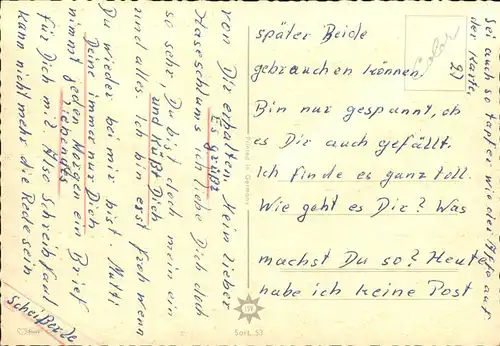 später Beide
gebrauchen können.
Bin nur gespannt, ob
es Dir auch gefällt.
Ich finde es ganz toll.
Wie geht es Dir? Was
machst Du so? Heute
habe ich keine Post
von Dir erhalten. Mein lieber
Hase schluns ich liebe Dich doch
so sehr, Du bist doch mein ein
und alles. Ich bin erst froh wenn
Du wieder bei mir bist. Mutti
nimmt jeden Morgen ein Brief
für Dich mit. Also Schreibfaul
kann nicht mehr die Rede sein
Es grüßt
und küßt Dich
Deine immer nur Dich
liebende
Scheißerle
sei auch so tapfer wie der Hase auf
der Karte.
Color
Printed in Germany
Serie 53